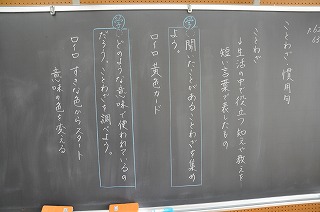 ことわざ 慣用句
ことわざ
→生活の中で役立つ知えや教えを
短い言葉で表したもの
学
聞いたことがあることわざを集め
よう。
ロイロ 黄色カード
学
どのような意味で使われているの
だろう。ことわざを調べよう。
ロイロ すきな色からスタート
意味で色を変える